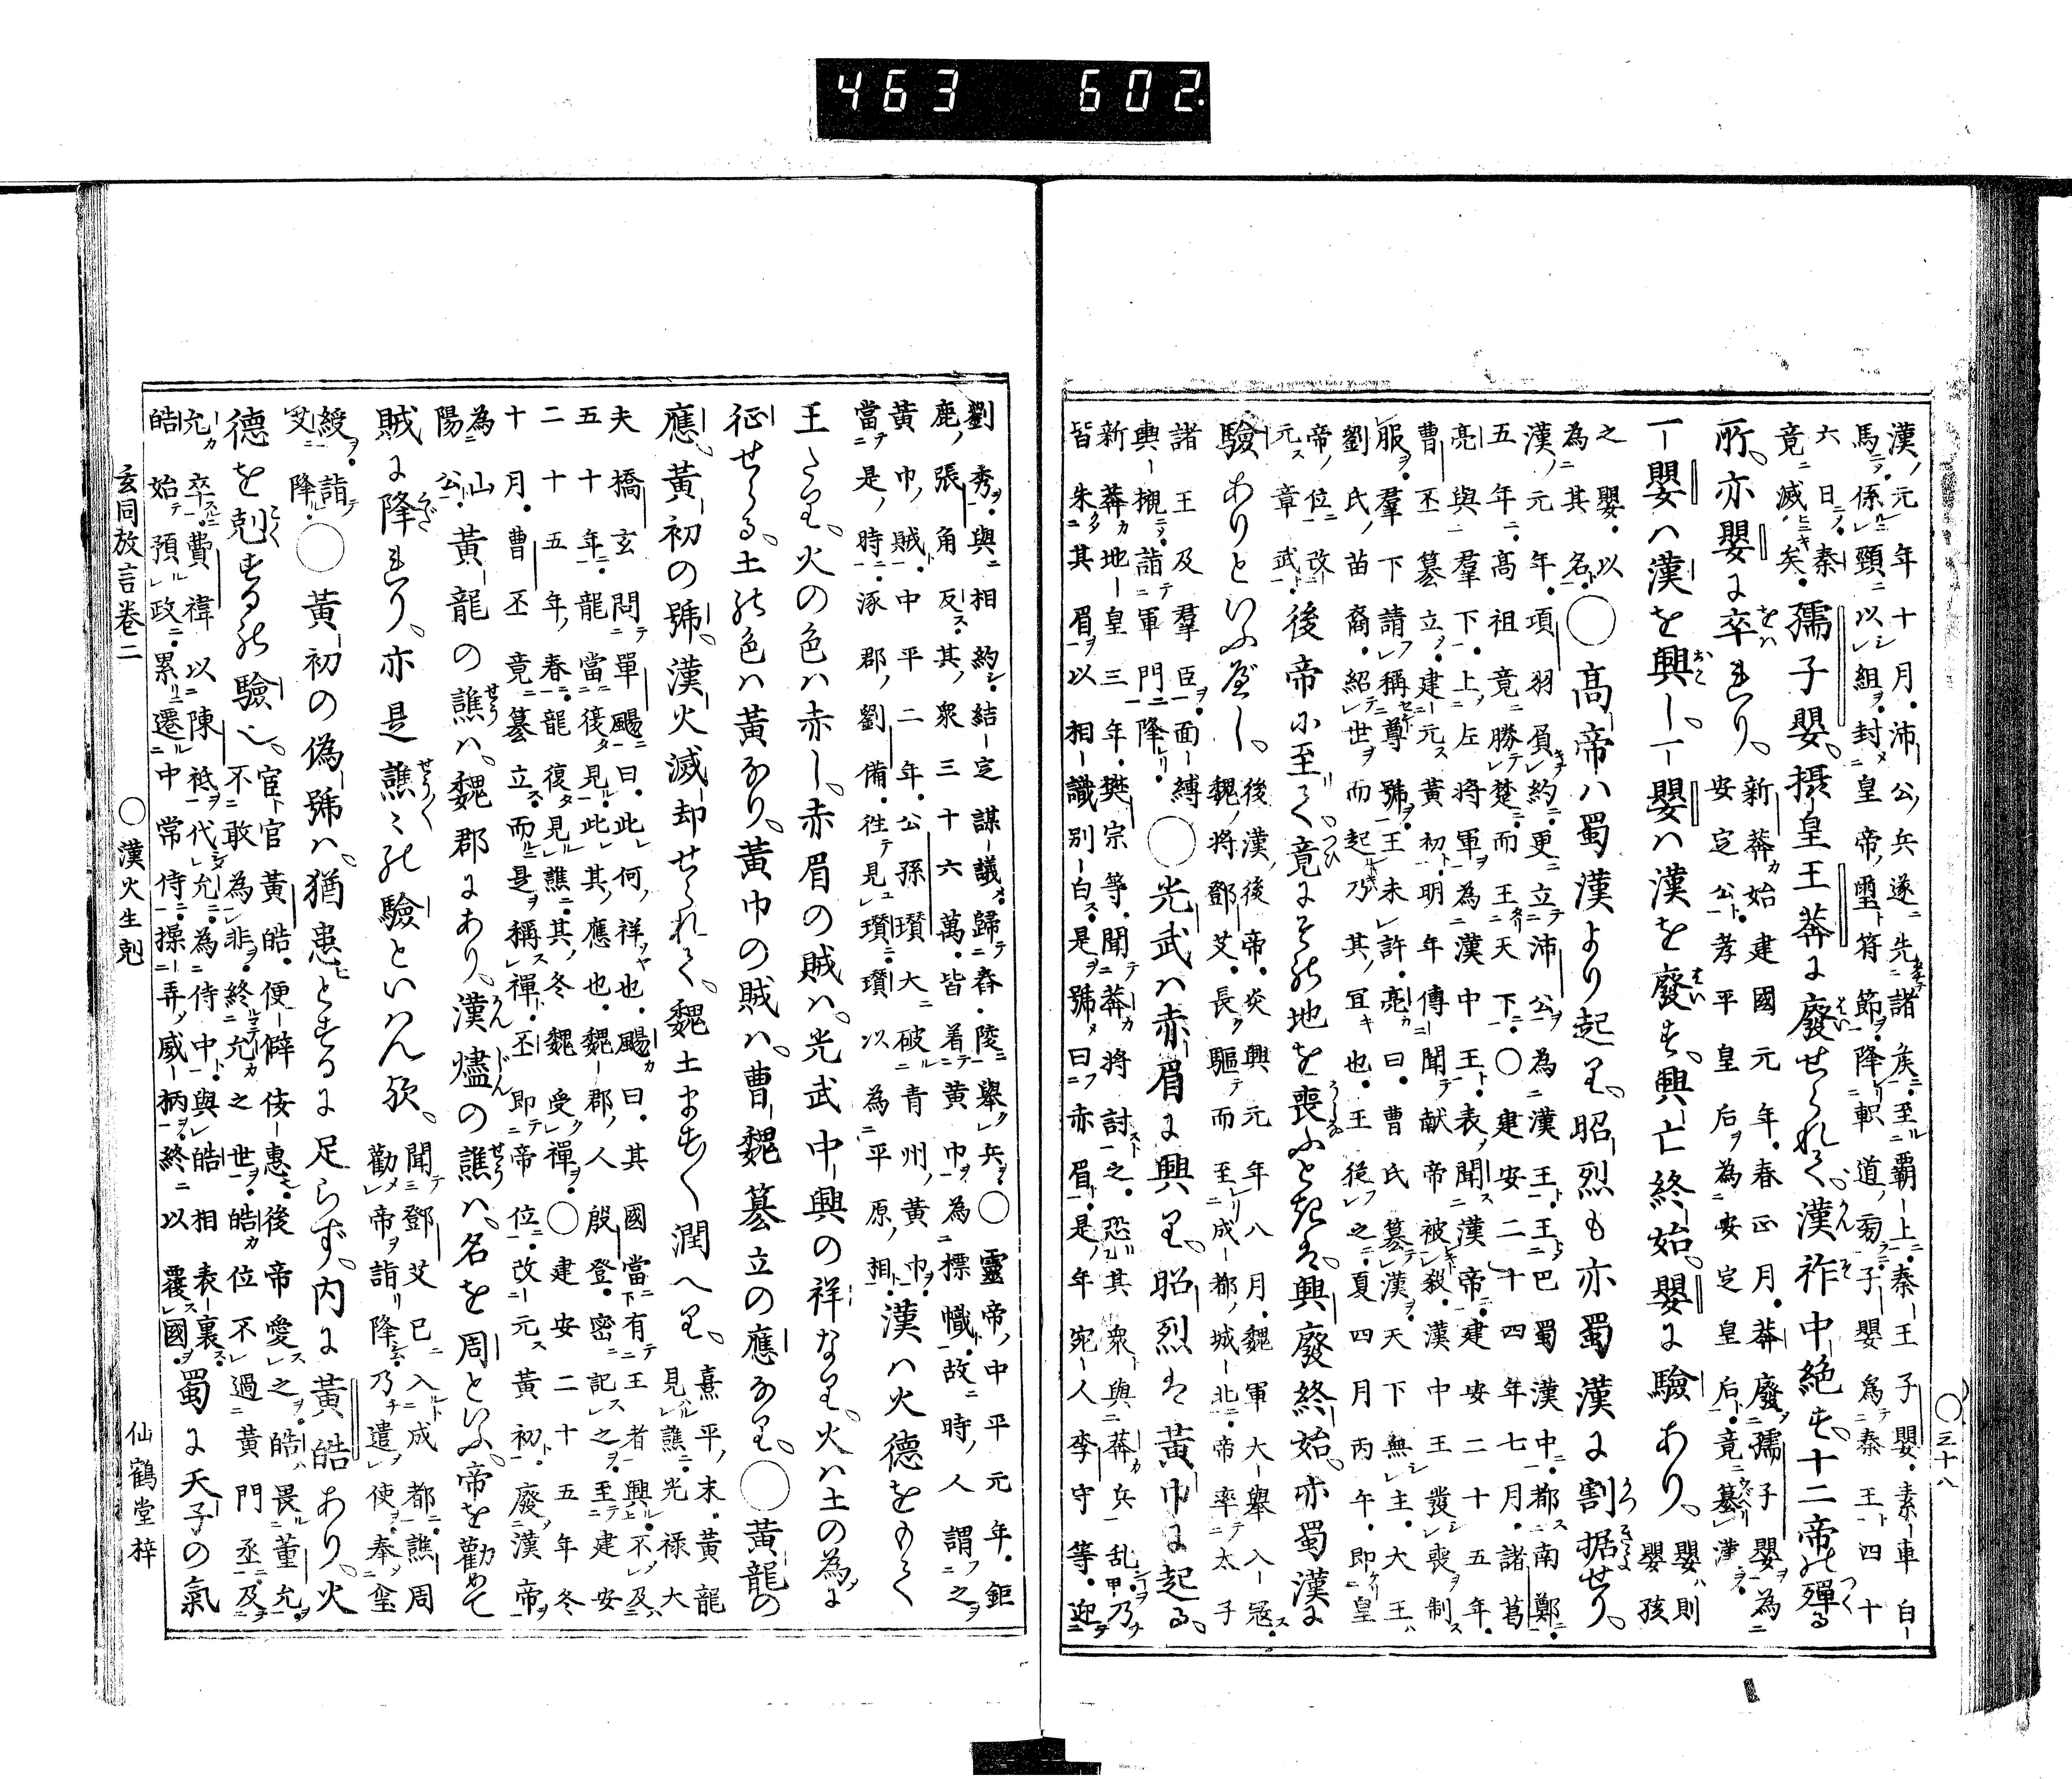 463 602.
○三十八
漢元年十月。沛公兵遂先諸矦至霸上。秦王子嬰。素車白
馬。係頸以組。封皇帝璽符節。降軹道旁。子嬰為秦王四十
六日。秦
竟滅矣。
孺子嬰。摂皇王莽に廢せられて、漢祚中絶す、十二帝の殫る
所、亦嬰に卒れり、
新莽始建國元年。春正月。莽廢孺子嬰為
安定公。孝平皇后為安定皇后。竟簒漢。
一嬰ハ漢を興し、一嬰ハ漢を廢す、興亡終始、嬰に驗あり、
嬰則
嬰孩
之嬰。以
為其名。
○高帝ハ蜀漢より起り、昭烈も亦蜀漢に割据せり、
漢元年。項羽負約。更立沛公為漢王。王巴蜀漢中。都南鄭。
五年。高祖竟勝楚。而王天下。○建安二十四年七月。諸葛
亮與群下。上左將軍為漢中王。表聞漢帝。建安二十五年。
曹丕簒立。建元黃初。明年傳聞献帝被殺。漢中王發喪制
服。羣下請稱尊號。王未許。亮曰。曹氏簒漢。天下無主。大王
劉氏苗裔。紹世而起。乃其宜也。王從之。夏四月丙午。即皇
帝位。改
元章武。
後帝に至て、竟にその地を喪ふときは、興廢終始、亦蜀漢に
驗ありといふべし、
後漢後帝。炎興元年八月。魏軍大舉入寇。
魏將鄧艾。長驅而至成都城北。帝率太子
諸王及羣臣。面縛
輿櫬詣軍門降。
○光武ハ赤眉に興り、昭烈は黃巾に起る、
新莽地皇三年。樊宗等。聞莽將討之。恐其衆與莽兵乱。乃
皆朱其眉。以相識別。自是號曰赤眉。是年宛人李守等。迎
劉秀。與相約。結定謀議。歸舂陵舉兵。○靈帝中平元年。鉅
鹿張角反。其衆三十六萬。皆着黃巾。為標幟。故時人謂之
黃巾賊。中平二年。公孫瓚大破青州黃巾。
當是時。涿郡劉備。徃見瓚。瓚以為平原相。
漢ハ火德をもて
王たり、火の色ハ赤し、赤眉の賊ハ、光武中興の祥なり、火ハ土の為に
征せらる、土の色ハ黃なり、黃巾の賊ハ、曹魏簒立の應なり、○黃龍の
應、黃初の號、漢火滅却せられて、魏土ますます潤へり、
熹平末。黃龍
見譙。光禄大
夫橋玄問單颺曰。此何祥也。颺曰。其國當有王者興。不及
五十年。龍當復見。此其應也。魏郡人殷登。密記之。至建安
二十五年。春龍復見譙。其冬魏受禪。○建安二十五年冬
十月。曹丕竟簒立。而是稱禪。丕即帝位。改元黃初。廢漢帝
為山
陽公。
黃龍の譙ハ、魏郡にあり、漢燼の譙ハ、名を周といふ、帝を勸めて
賊に降れり、亦是譙々の驗といはん歟、
聞鄧艾已入成都。譙周
勸帝詣降。乃遣使。奉璽
綬。詣
艾降。
○黃初の偽號ハ、猶患とするに足らず、内に黃皓あり、火
德を剋するの驗也、
宦官黃皓。便僻佞惠。後帝愛之。皓畏董允。
不敢為非。終允之世。皓位不過黃門丞。及
允卒。費禕以陳祗代允。為侍中。與皓相表裏。
皓始預政。累遷中常侍。操弄威柄。終以覆國。
蜀に天子の氣
玄同放言巻二 ○漢火生剋 仙鶴堂梓